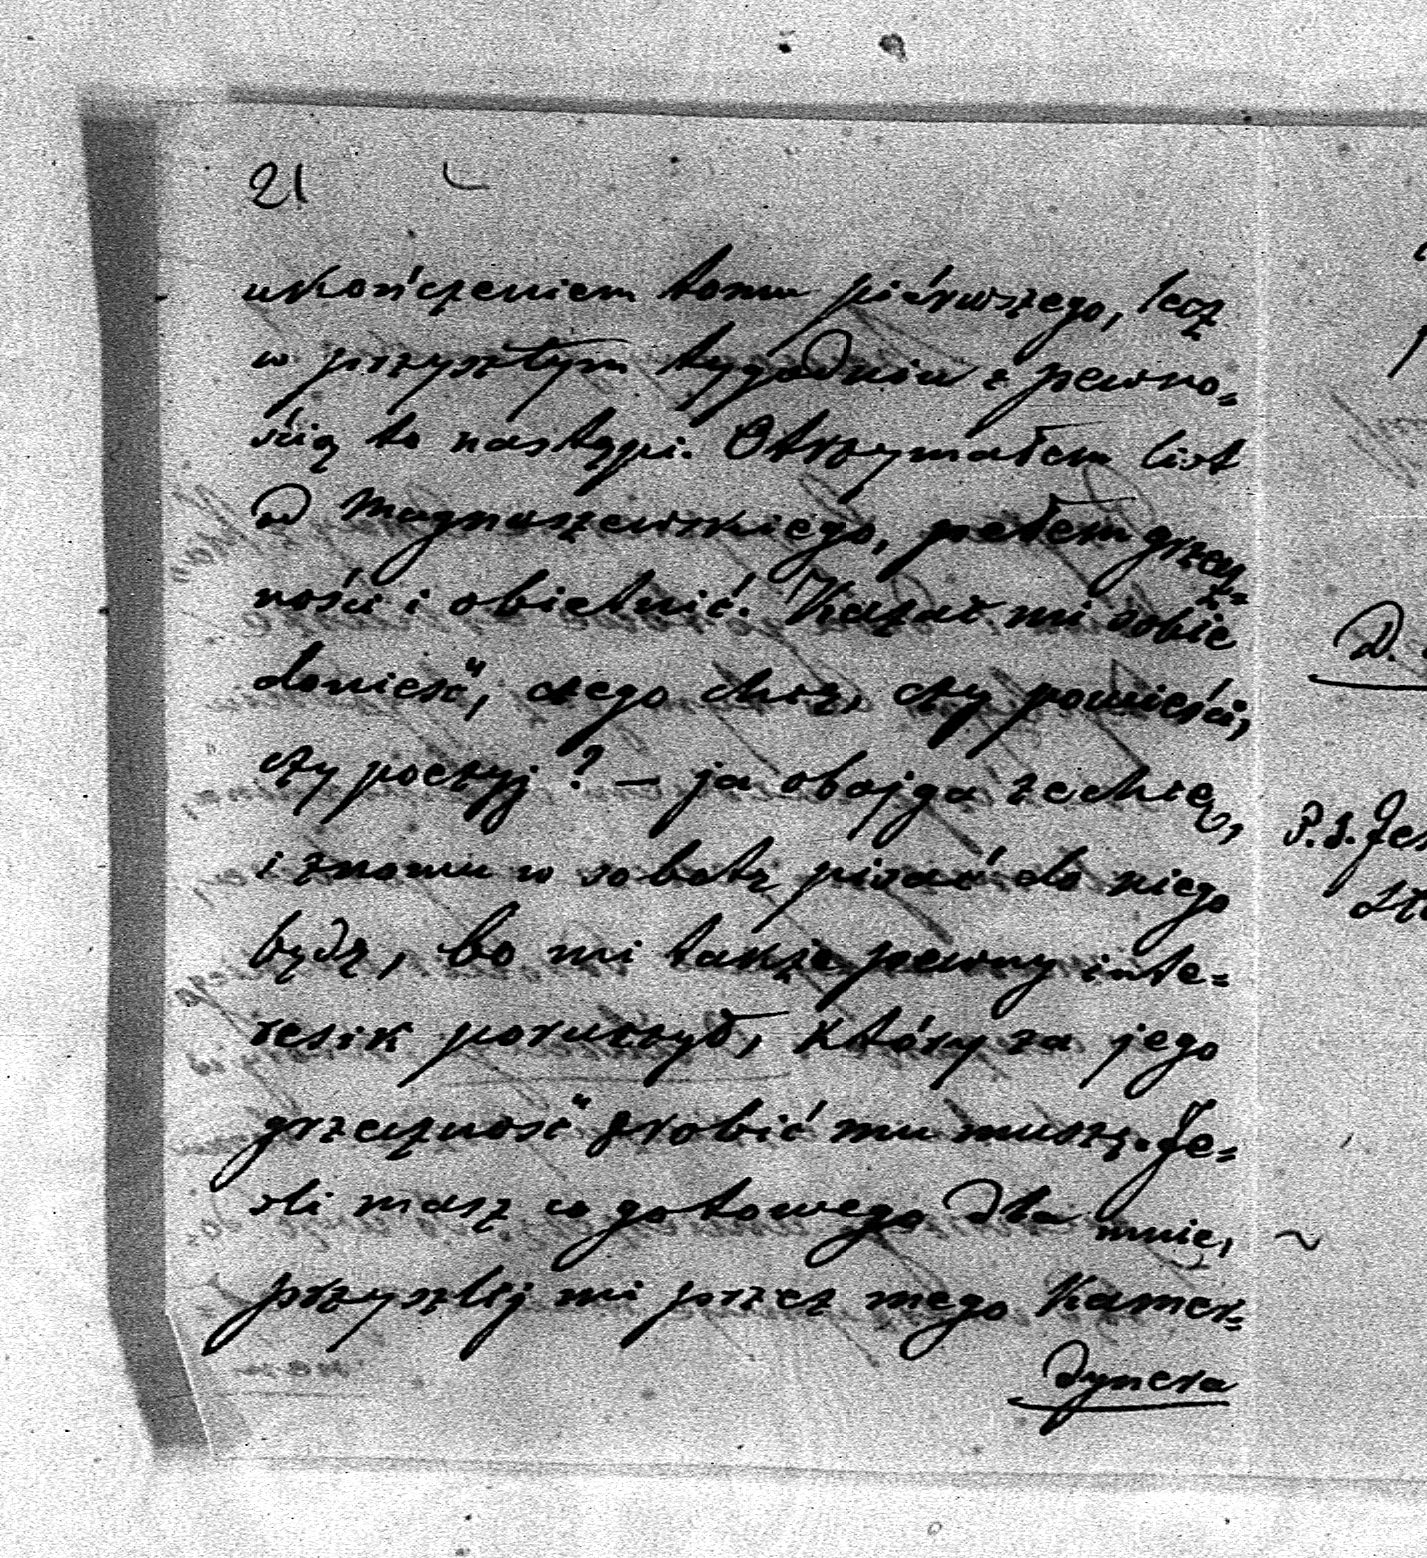 21
ukończeniem tomu piérwszego, lecz
w przyszłym tygodniu z pewno=
ścią to nastąpi. Otrzymałem list
od Magnuszewskiego, pełem grzecz=
ności i obietnic. Kazał mi sobie
donieść, czego chcę, czy powieści,
czy poezyj? — ja obojga zechcę,
i znowu w sobotę pisać do niego
będę, bo mi także pewny inte=
resik poruczył, który za jego
grzeczność zrobić mu muszę. Je=
śli masz co gotowego dla mnie,
przyszlij mi przez mego Kamer=
dynera
D.
P.S. Jes